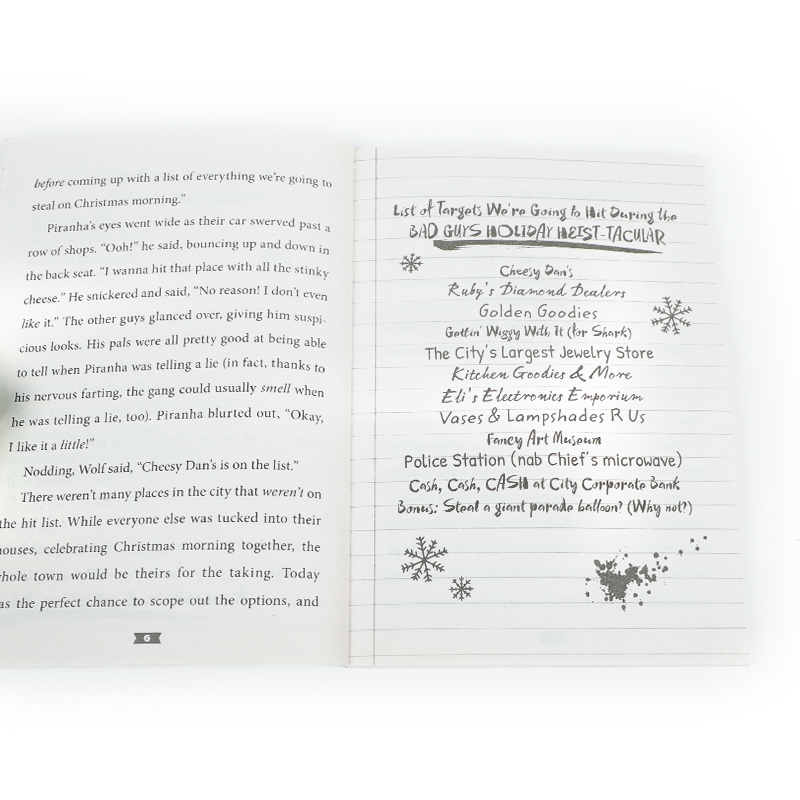 before coming up with a list of everything we're going to
steal on Christmas morning."
Piranha's eyes went wide as their car swerved past a
row of shops. "Ooh!" he said, bouncing up and down in
the back seat. "I wanna hit that place with all the stinky
cheese." He snickered and said, "No reason! I don't even
like it." The other guys glanced over, giving him suspi-
cious looks. His pals were all pretty good at being able
to tell when Piranha was telling a lie (in fact, thanks to
his nervous farting, the gang could usually smell when
he was telling a lie, too). Piranha blurted out, "Okay,
I like it a little!"
Nodding, Wolf said, "Cheesy Dan's is on the list."
There weren't many places in the city that weren't on
the hit list. While everyone else was tucked into their
houses, celebrating Christmas morning together, the
whole town would be theirs for the taking. Today
as the perfect chance to scope out the options, and
6
List of Targets We're Going to Hit During the
BAD GUYS HOLIDAY HEIST-TACULAR
Cheesy Dan's
Ruby's Diamond Dealers
Golden Goodies
Gettin' Wiggy With It (for Shark)
The City's Largest Jewelry Store
Kitchen Goodies & More
Eli's Electronics Emporium
Vases & Lampshades R Us
Fancy Art Museum
Police Station (nab Chief's microwave)
Cash, Cash, CASH at City Corporate Bank
Bonus: Steal a giant parade balloon? (Why not?)